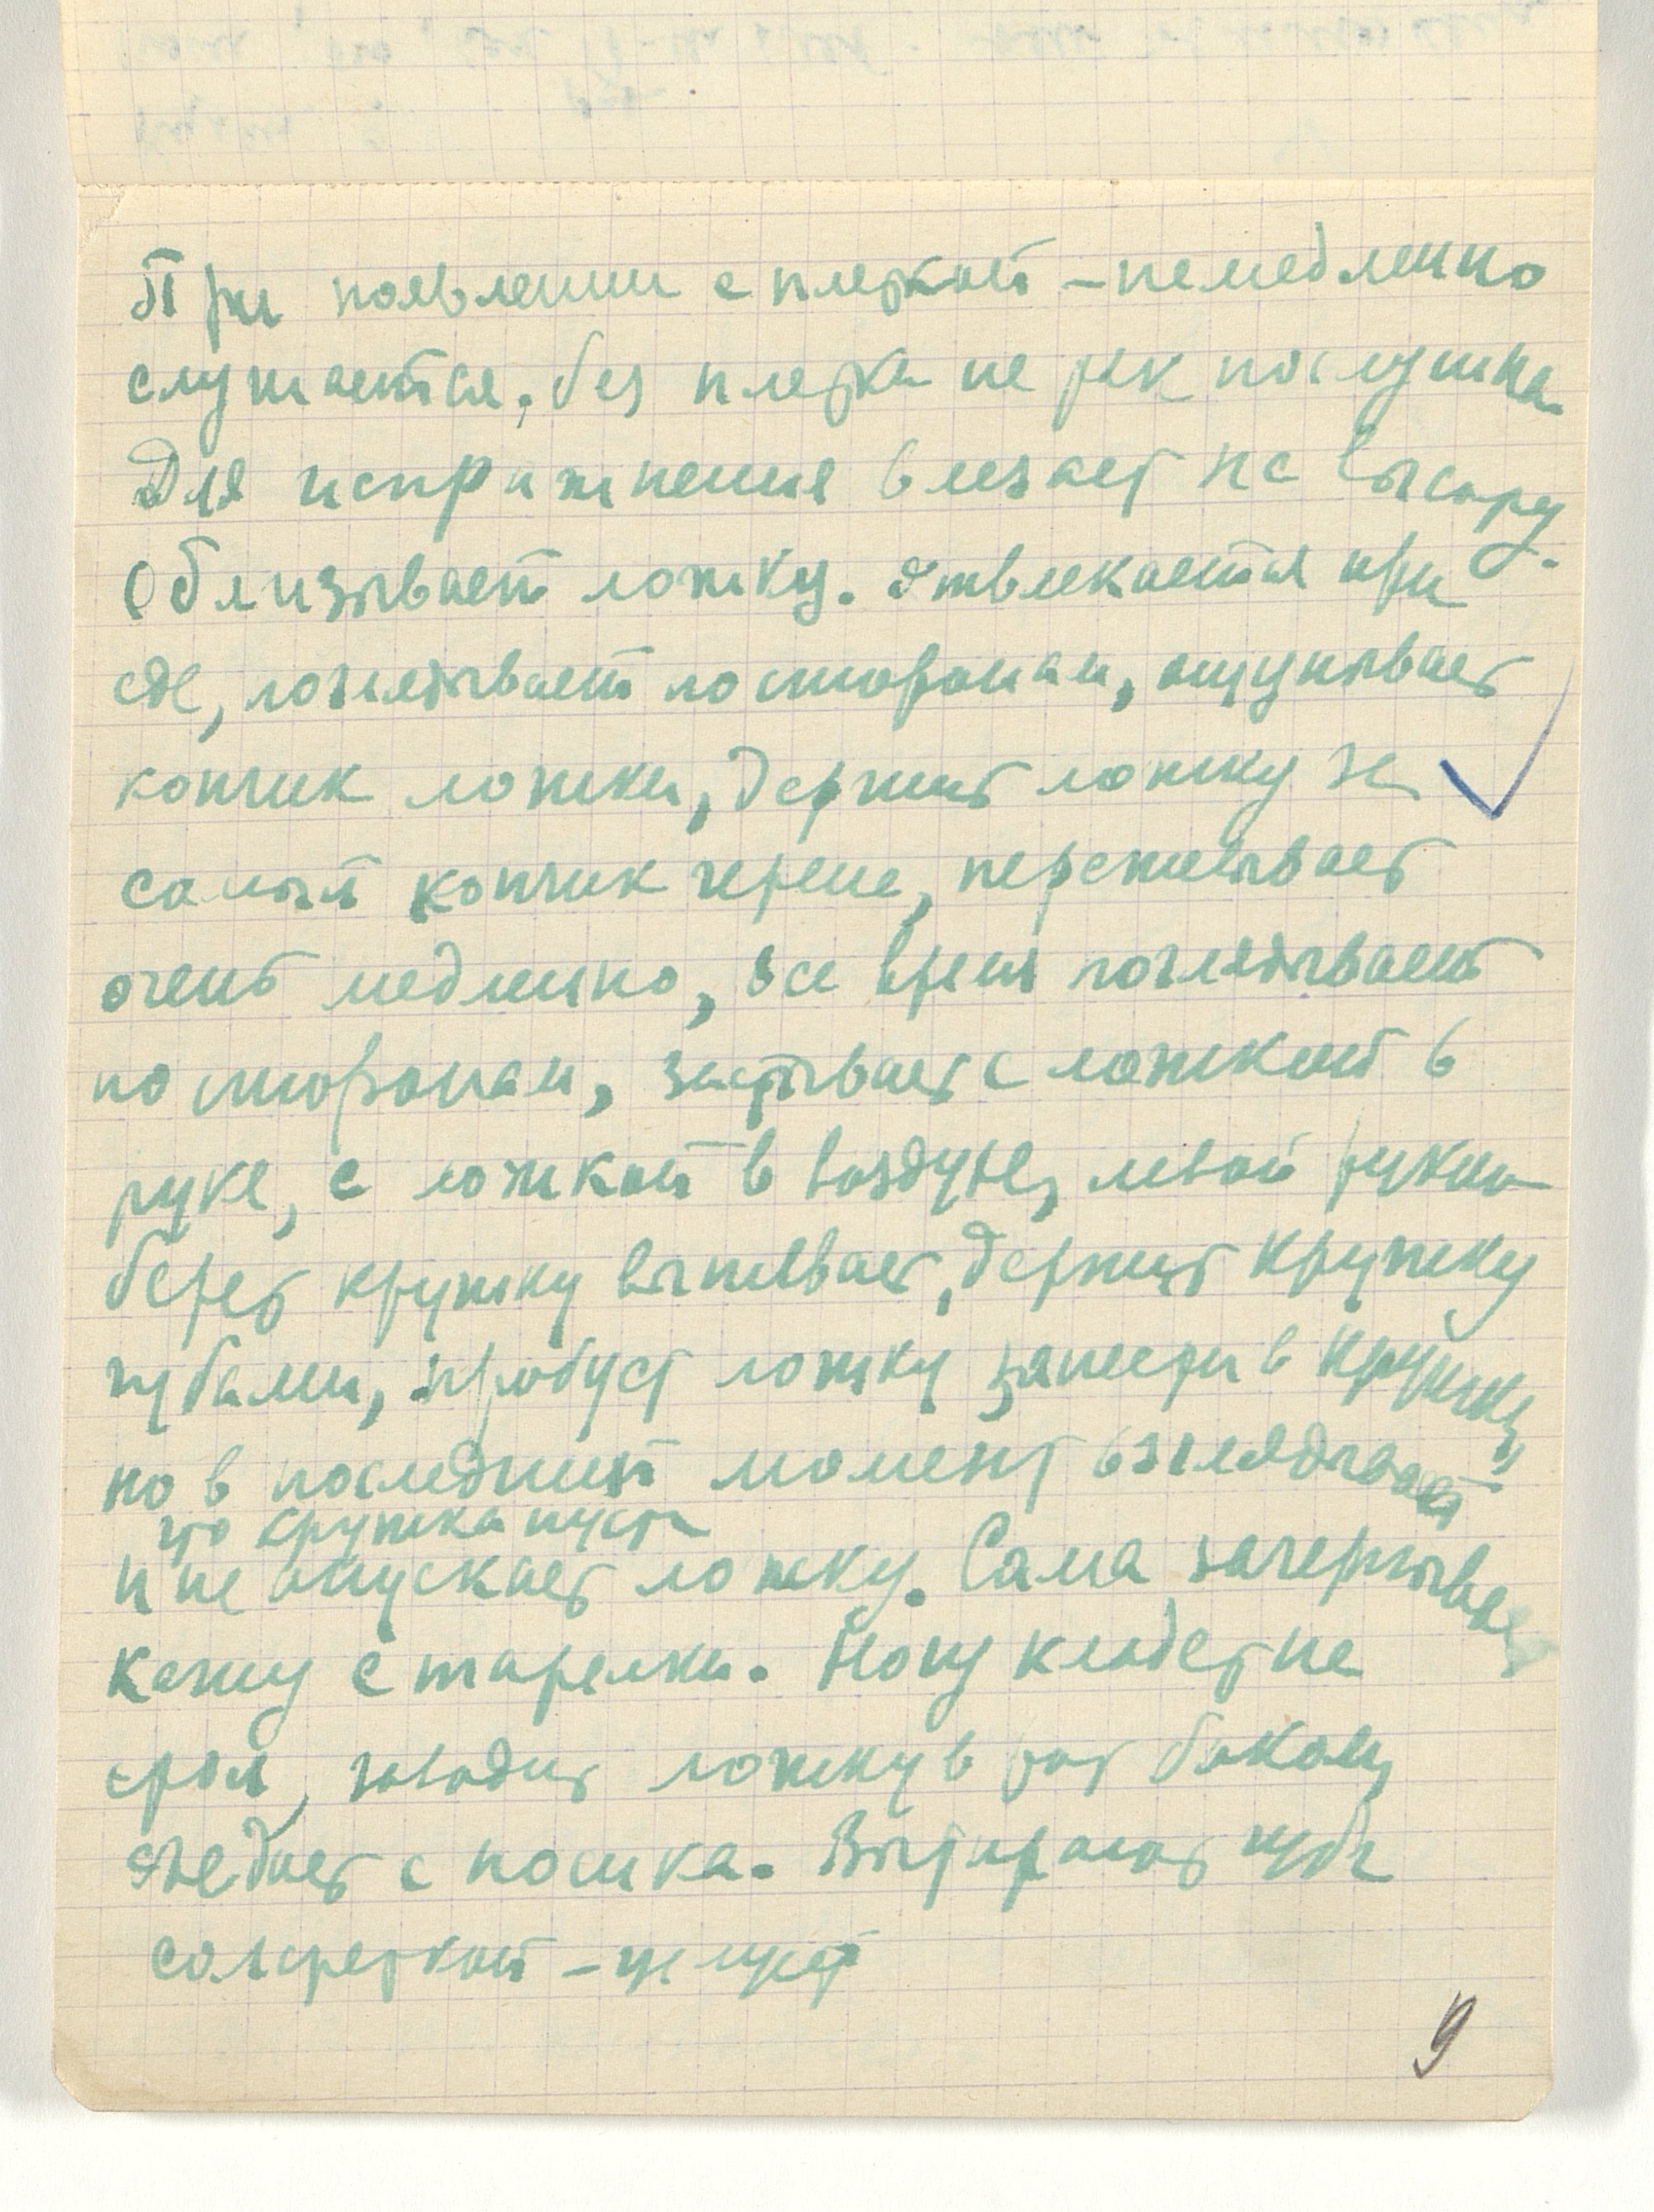 При появлении с плеткой – немедленно
слушается, без плетки не так послушна.
Для испражнения влезает на
Облизывает ложку. Отвлекается при
еде, поглядывает по сторонам, ощупывает
кончик ложки, держит ложку за
самый кончик черена, пережевывает
очень медленно, все время поглядывает
по сторонам, застывает с ложкой в
руке, с ложкой в воздухе, левой рукой
берет кружку выпивает, держит кружку
губами, пробует ложку занести в кружку,
но в последний момент взглядывает
что кружка пуста
и не опускает ложку. Сама зачерпывает
кашу с тарелки. Ногу кладет на
стол, заводит ложку в рот боком,
съедает с носика. Вытирают губы
салфеткой –
9